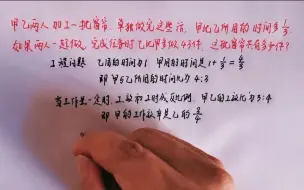 甲乙两人加工一批零件,单独做完这些活,甲比乙所用的时间多1/3
如果两人一起做,完成任务时乙比甲多做43个,这批零件共有多少个?
工程问题 乙用的时间为1 甲用的时间是1+1/3=4/3
即甲与乙所用的时间比为4:3
当工作量一定时,工效和工时成反比例,甲乙的工效比为3:4
即甲的工作效率是乙的3/4